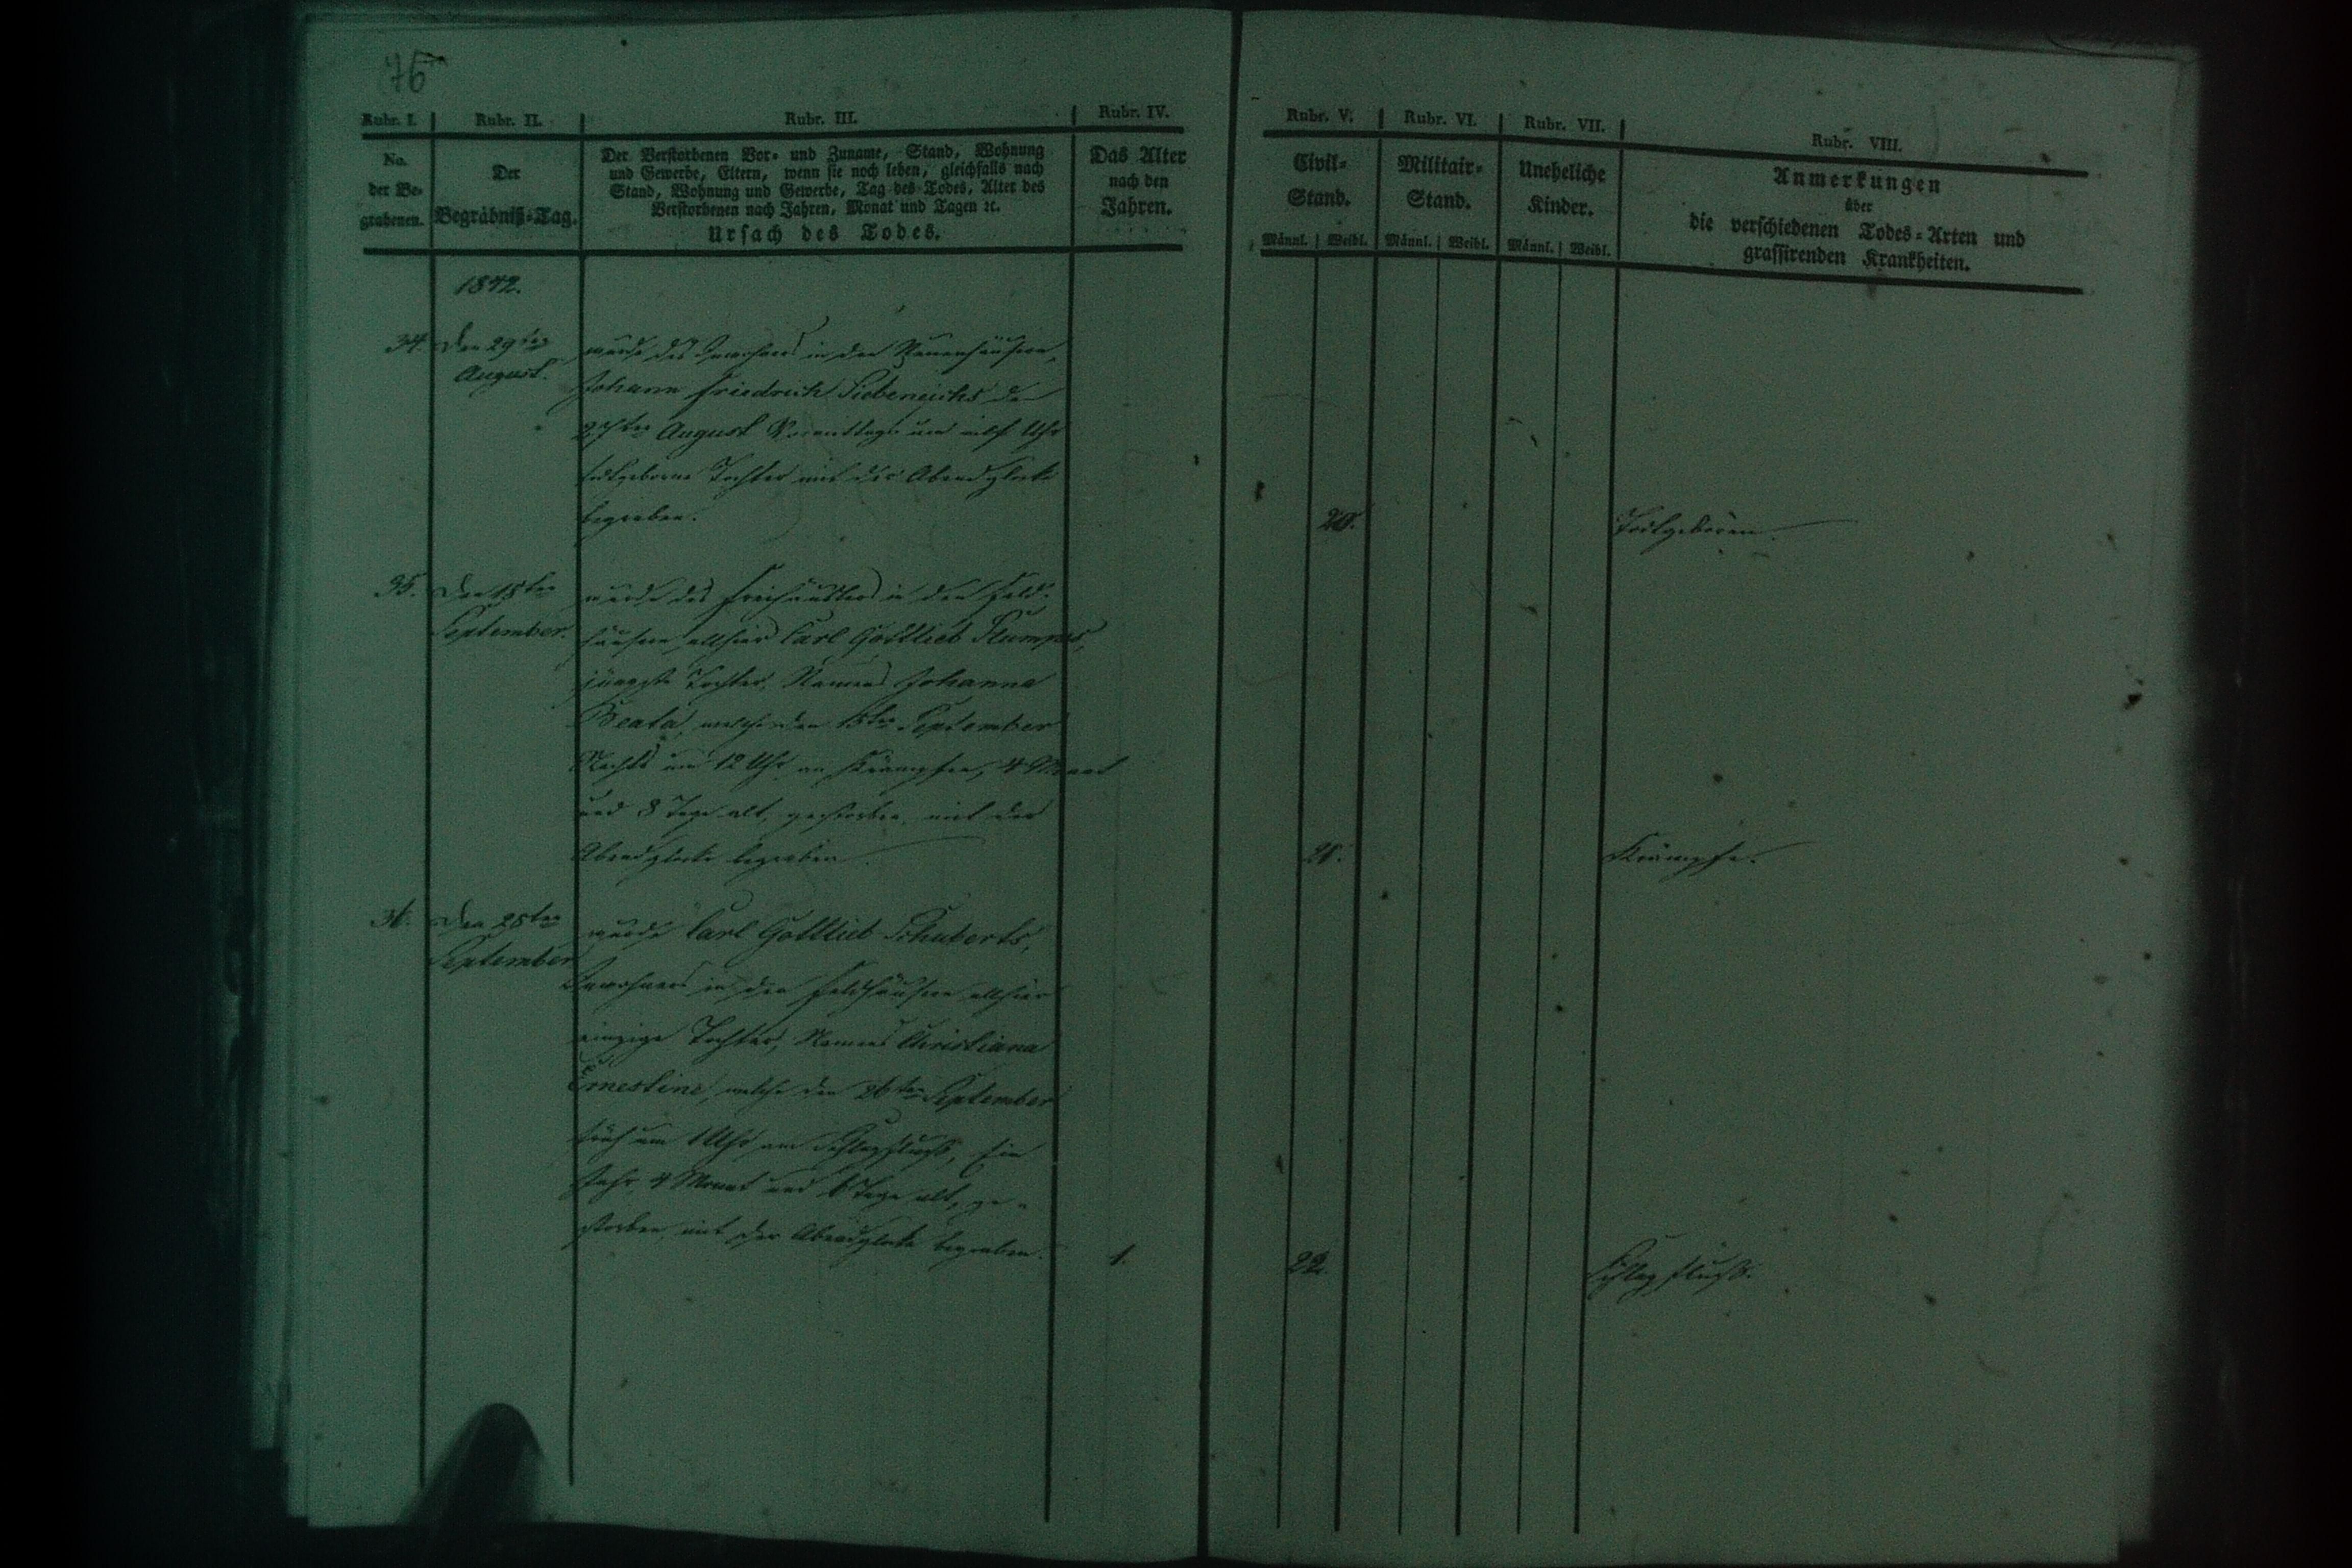 76
Rubr. I. Rubr. II. Rubr. III. Rubr. IV. Rubr. V. Rubr. VI. Rubr. VII. Rubr. VIII.
No.
der Be-
grabenen.
Der
Begräbniß-Tag.
Der Verstorbenen Vor- und Zuname, Stand, Wohnung
und Gewerbe, Eltern, wenn sie noch leben, gleichfalls nach
Stand, Wohnung und Gewerbe, Tag des Todes, Alter des
Verstorbenen nach Jahren, Monat und Tagen ꝛc.
Ursach des Todes.
Das Alter
nach den
Jahren.
Civil-
Stand.
Männl. Weibl.
Militair-
Stand.
Männl. Weibl.
Uneheliche
Kinder.
Männl. Weibl.
Anmerkungen
über
die verschiedenen Todes-Arten und
grassirenden Krankheiten.
1842.
34. Den 29ten
August.
wurde des Inwohners in den
Johann Friedrich Siebeneichs den
27ten August Vormittags um elf Uhr
todtgeborne Tochter mit der Abendglocke
begraben. 20. Todtgeboren.
35. Den 18ten
September.
wurde des Freihäuslers in den Feld-
häusern allhier Carl Gottlieb
jüngste Tochter, Namens Johanne
Beata, welche den 15ten September
Nachts um 12 Uhr an Krämpfen, 4 Monat
und 8 Tage alt, gestorben, mit der
Abendglocke begraben. 21. Krämpfe.
36. Den 28ten
September
wurde Carl Gottlieb Schuberts,
Inwohners in den Feldhäusern allhier
einzige Tochter, Namens Christiana
Ernestine, welche den 26ten September
früh um 1 Uhr am Schlagfluß, Ein
Jahr, 4 Monat und 6 Tage alt, ge-
storben, mit der Abendglocke begraben. 1. 22. Schlagfluß.